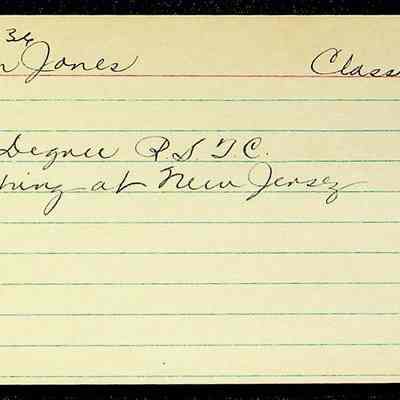 36
n Jones Class
Degree P.S.T.C.
hing at New Jersey